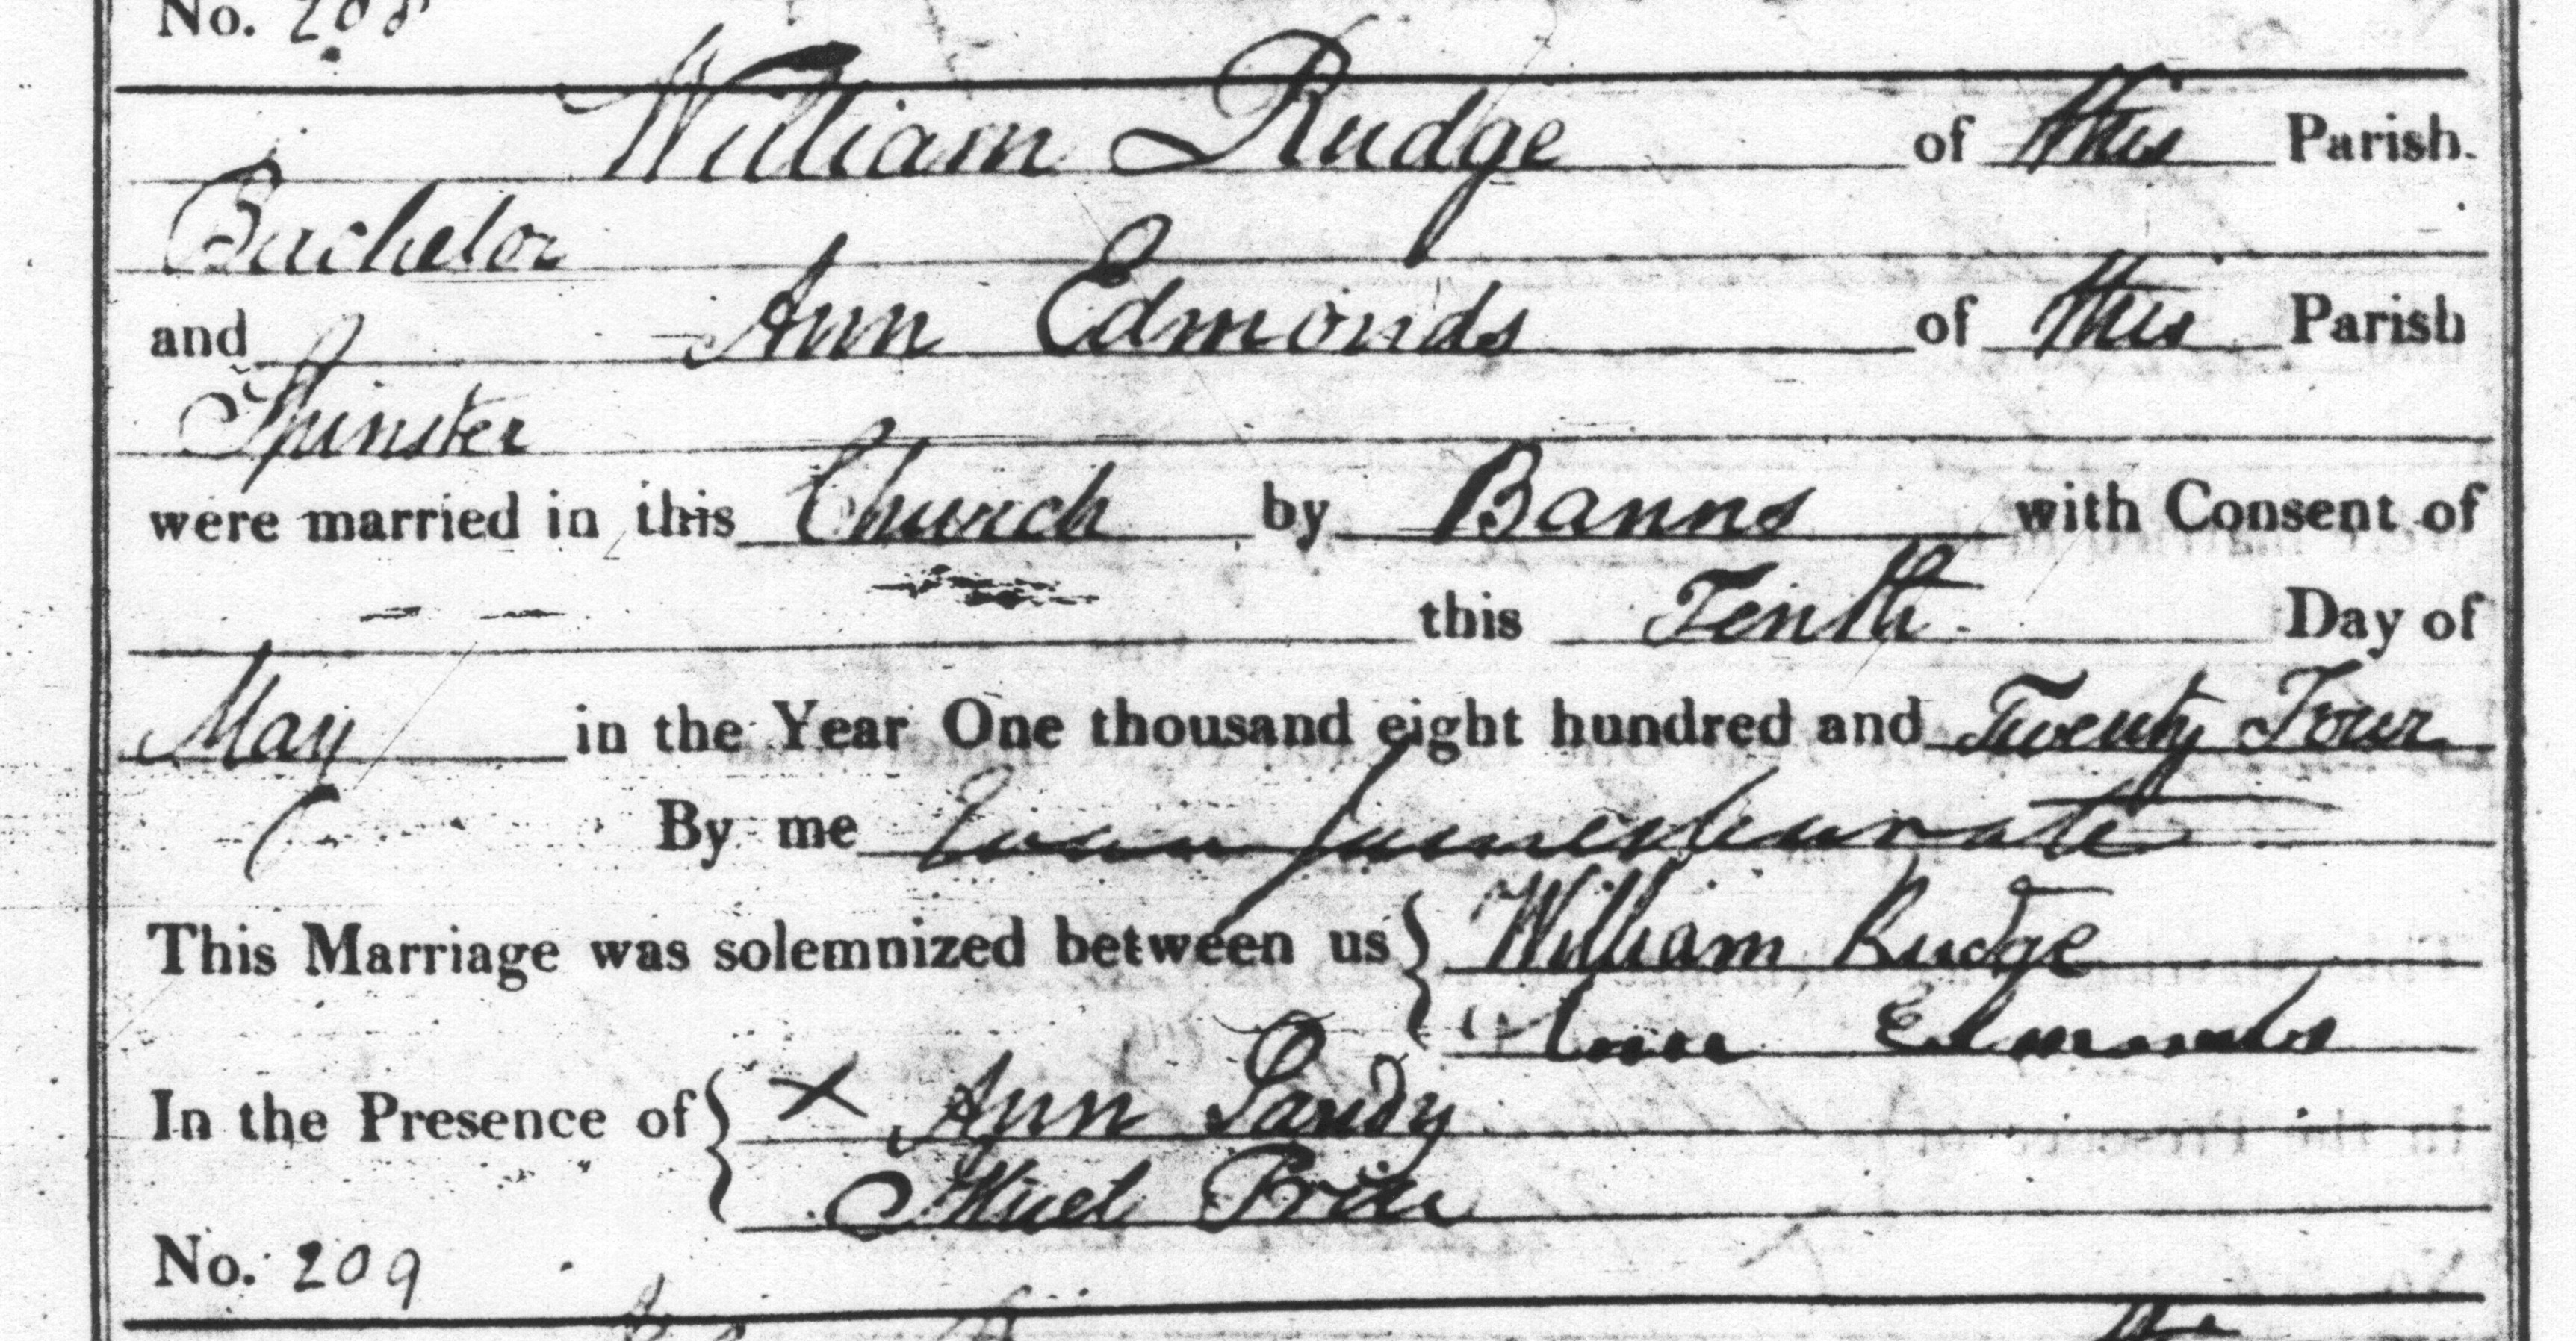 No. 208
William Rudge of this Parish.
Bachelor
and Ann Edmonds of this Parish
Spinster
were married in this Church by Banns with Consent of
this Tenth Day of
May in the Year One thousand eight hundred and Twenty Four
By me Curate
This Marriage was solemnized between us William Rudge
Ann Edmonds
In the Presence of X Ann Pandy
Price
No. 209